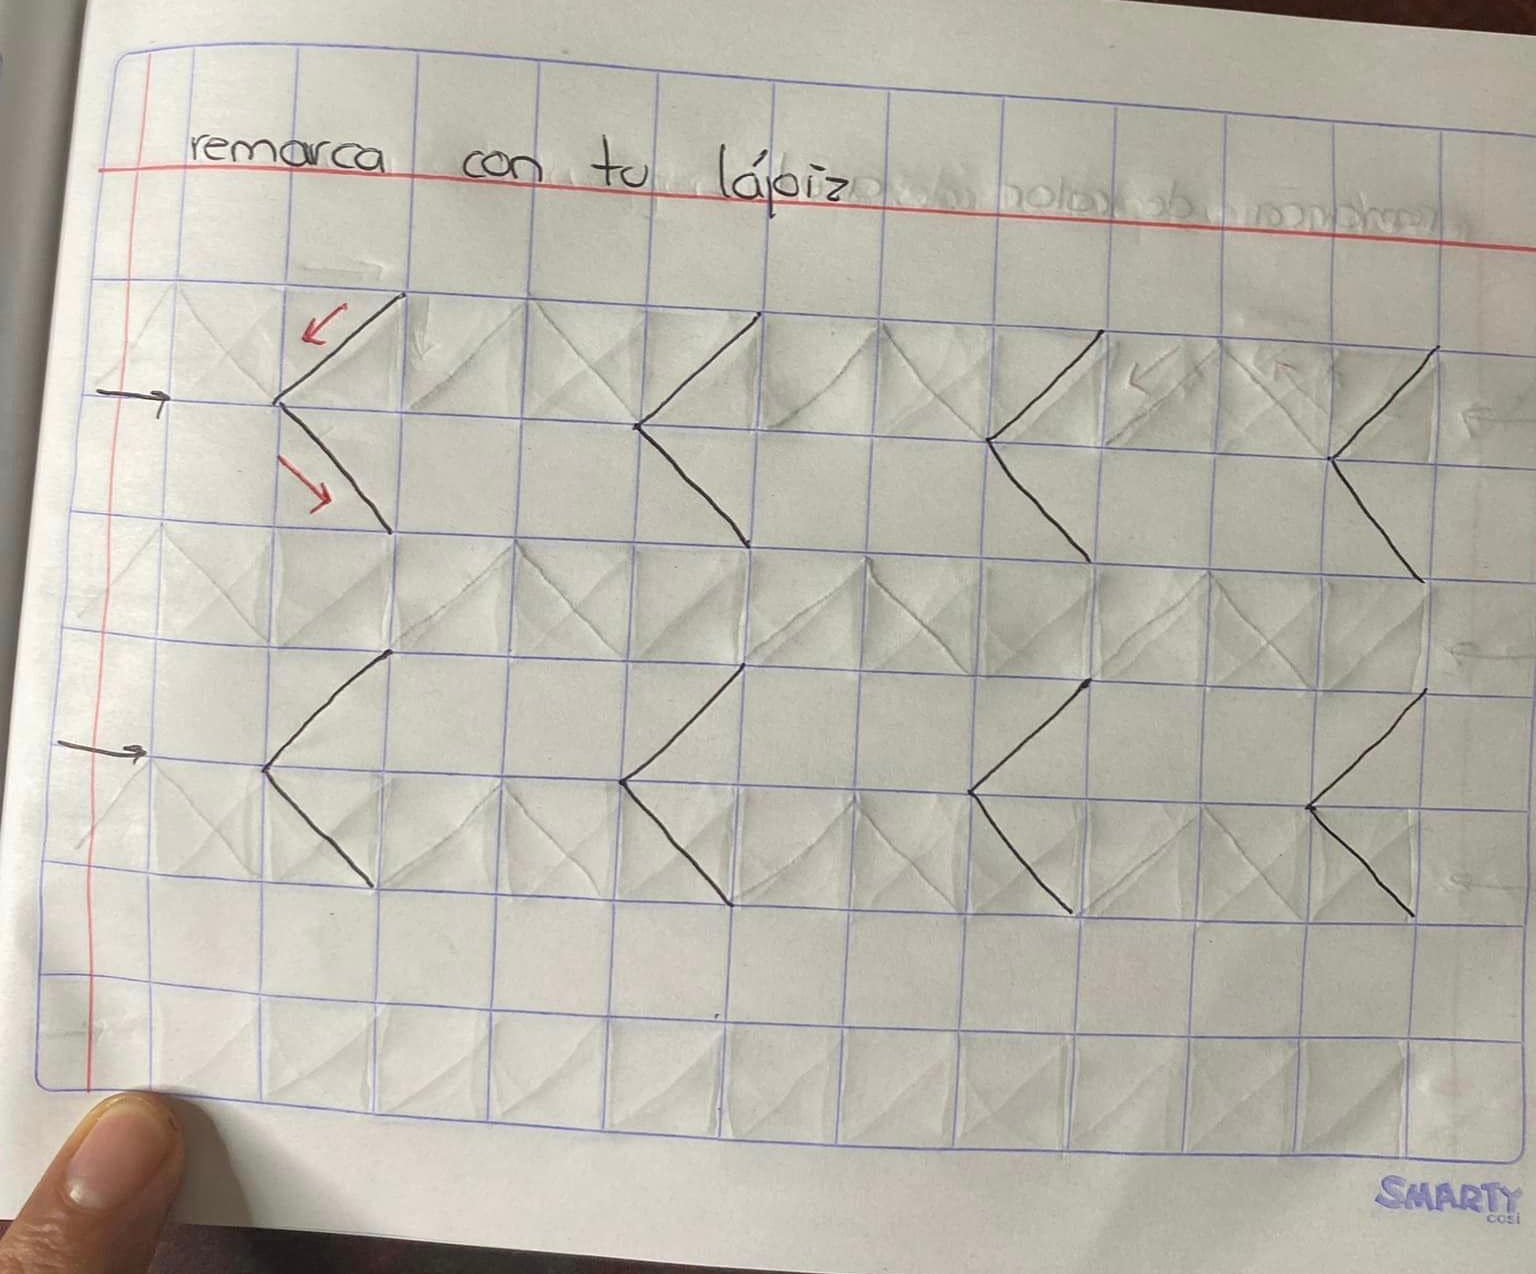 remarca con tu lápiz
SMARTY
cosi